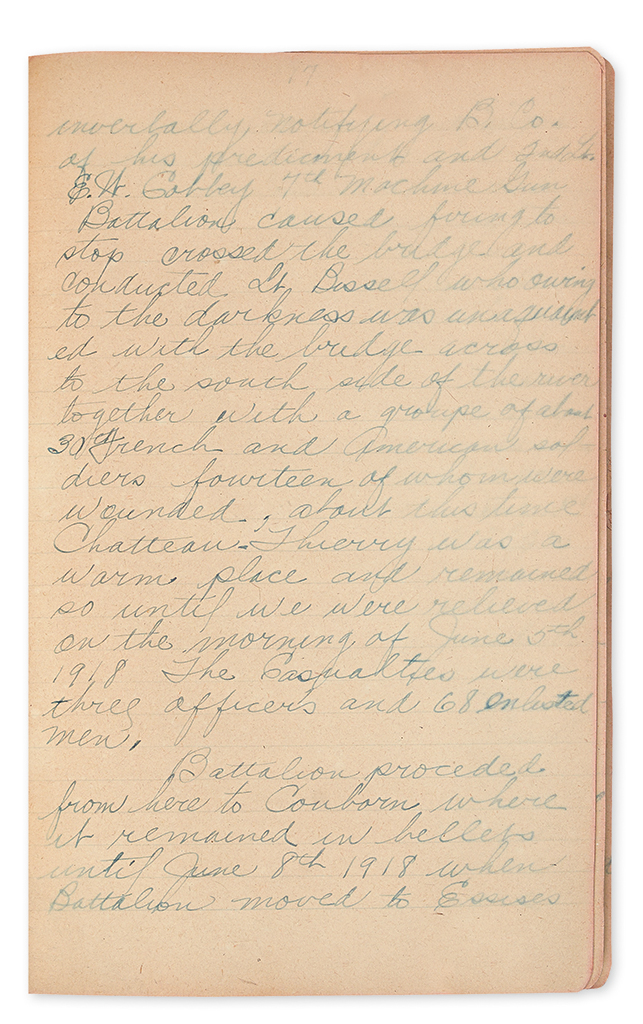 17
inverbally, notifiying B. Co.
of his predicment and 2nd Lt.
E.W. Cobbey 7th Machine Gun
Battalion, caused firing to
stop crossed the bridge and
conducted Lt. Bissell who owing
to the darkness was unaquaint
ed with the bridge across
to the south side of the river
together with a groupe of about
30 French and American sol-
diers fourteen of whom were
wounded., about this time
Chatteau-Thierry was a
warm place and remained
so until we were relieved
on the morning of June 5th
1918 The Casualties were
three officers and 68 enlisted
men.
Battalion proceded
from here to Conborn, where
it remained in bellets
until June 8th 1918 when
Battalion moved to Essises